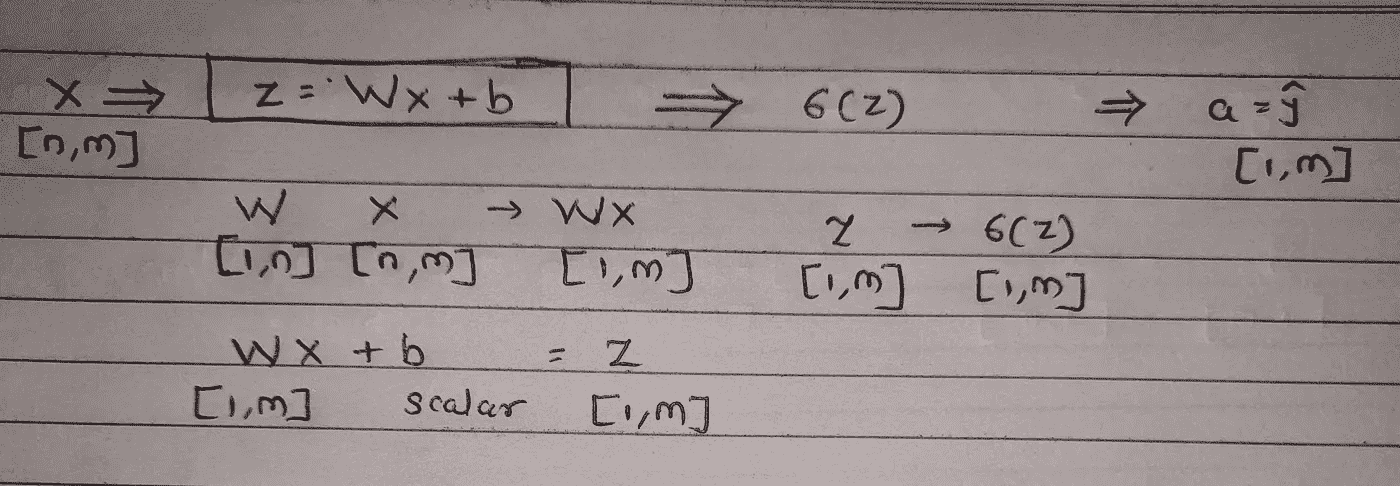 x ⇒ z = Wx + b ⇒ σ(z) ⇒ a = ŷ
[n,m] [1,m]
W x → Wx z → σ(z)
[1,n] [n,m] [1,m] [1,m] [1,m]
Wx + b = z
[1,m] scalar [1,m]